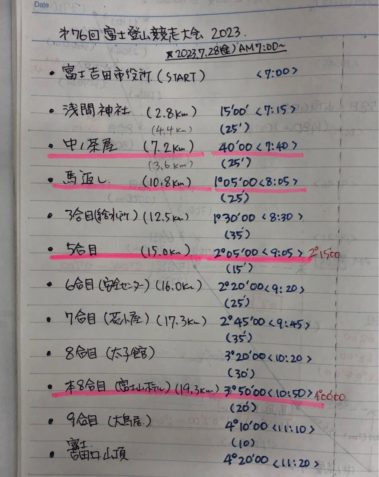 Date
第76回 富士登山競走大会 2023.
※2023.7.28(金) AM7:00~
・富士吉田市役所 (START) <7:00>
・浅間神社 (2.8km) 15'00" <7:15>
(4.4km) (25')
・中ノ茶屋 (7.2km) 40'00 <7:40>
(3.6km) (25')
・馬返し (10.8km) 1°05'00 <8:05>
(25')
・3合目(給水所) (12.5km) 1°30'00 <8:30>
(35')
・5合目 (15.0km) 2°05'00 <9:05> 2°15'00
(15')
・6合目(安全センター) (16.0km) 2°20'00 <9:20>
(25')
・7合目(花小屋) (17.3km) 2°45'00 <9:45>
(35')
・8合目(太子館) 3°20'00 <10:20>
(30')
・本8合目(富士山ホテル) (19.3km) 3°50'00 <10:50> 4°00'00
(20')
・9合目(大鳥居) 4°10'00 <11:10>
(10)
・富士
山頂 4°20'00 <11:20>